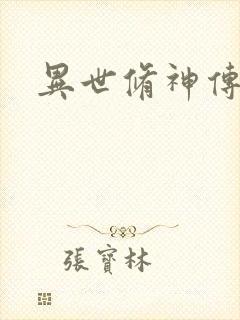 異世脩神傳
張寶林